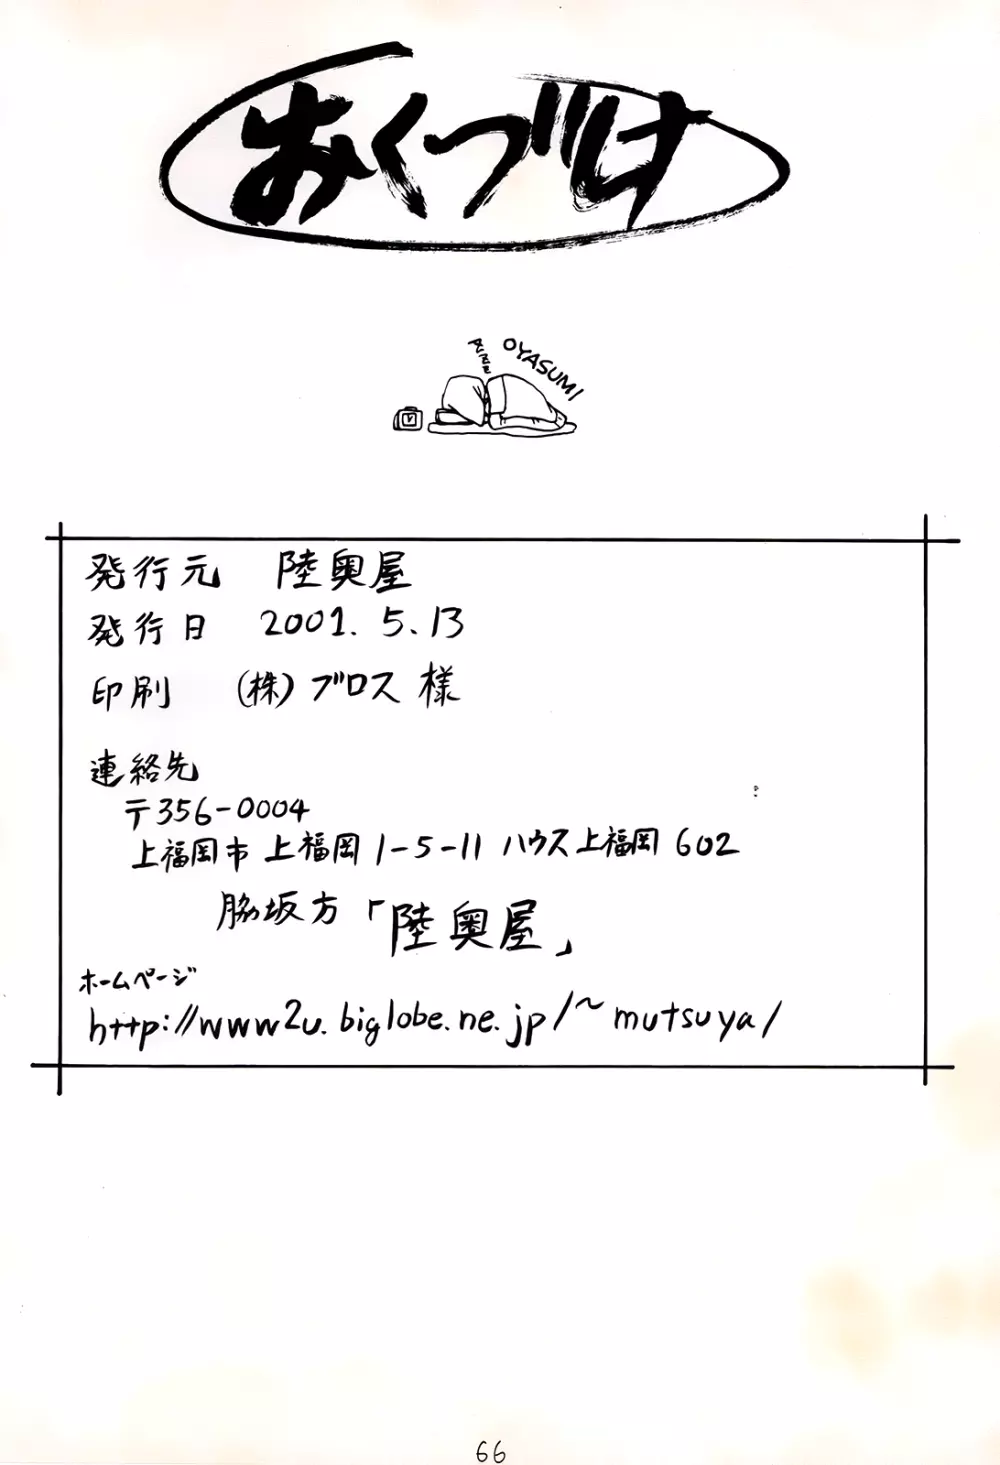 おくづけ
zzzz
OYASUMI
発行元 陸奥屋
発行日 2001. 5. 13
印刷 (株)ブロス 様
連絡先
〒356-0004
上福岡市 上福岡 1-5-11 ハウス上福岡 602
脇坂方「陸奥屋」
ホームページ
http://www2u.biglobe.ne.jp/~mutsuya/
66